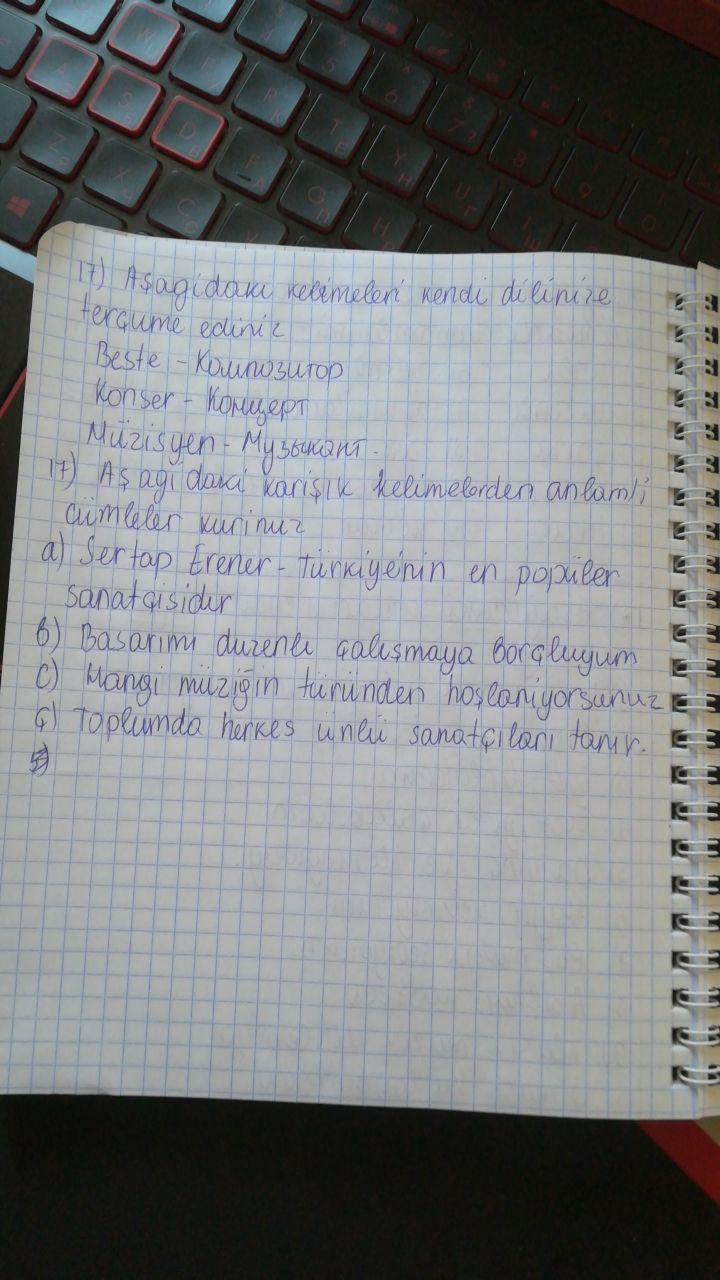 17) Aşagidakı kelimeleri kendi dilinize
terçume ediniz
Beste - Композитор
Konser - Концерт
Müzisyen - Музыкант.
17) Aşagidaki karişık kelimelerden anlamlı
cümleler kurinuz
a) Sertap Erener - Türkiye'nin en popüler
sanatçisidir
b) Basarımı duzenli çalışmaya borçluyum
c) Hangi müziğin türünden hoşlaniyorsunuz
ç) Toplumda herkes ünlü sanatçıları tanır.